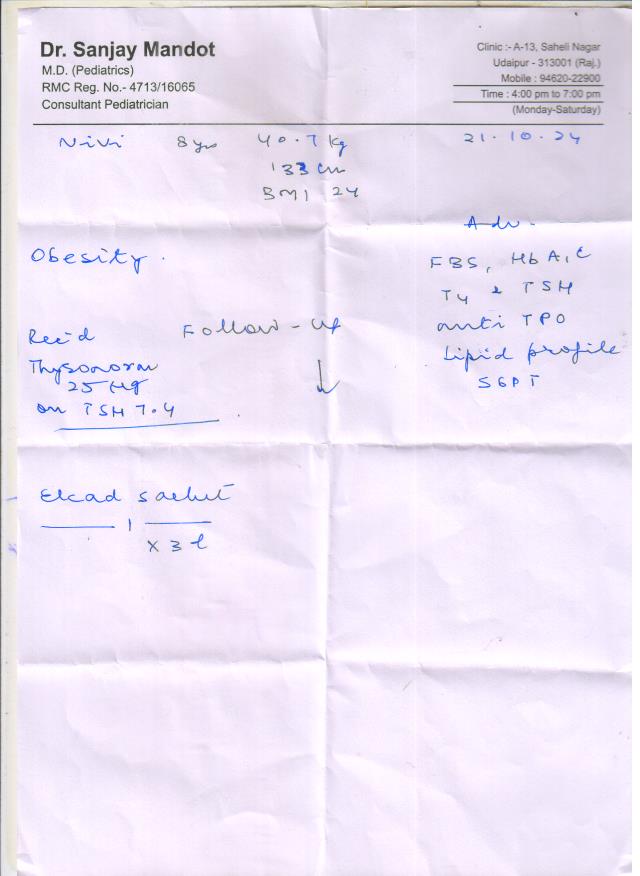 Dr. Sanjay Mandot
M.D. (Pediatrics)
RMC Reg. No.- 4713/16065
Consultant Pediatrician
Clinic :- A-13, Saheli Nagar
Udaipur - 313001 (Raj.)
Mobile : 94620-22900
Time : 4:00 pm to 7:00 pm
(Monday-Saturday)
Nivi 8 yrs 40.7 kg
133 cm
BMI 24
21.10.24
Obesity.
Adv.
FBS, HbA1C
T4 & TSH
anti TPO
Lipid profile
SGPT
Follow-up
Rec'd
Thyronorm
25 µg
on TSH 7.4
Elcad sachet
1
x 3